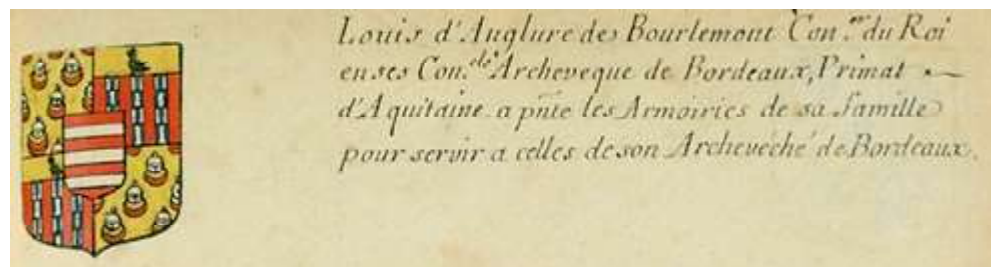 Louis d'Anglure des Bourlemont Con.er du Roi
en ses Con.els Archeveque de Bordeaux, Primat
d'Aquitaine a pñte les Armoiries de sa famille
pour servir a celles de son Archevéché de Bordeaux.